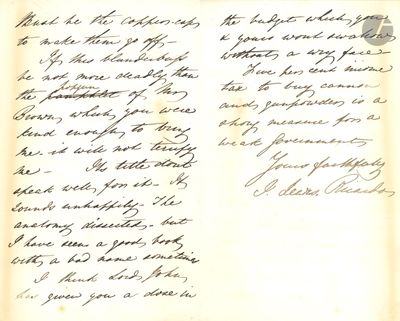 must be the copper-caps
to make them go off –
If this blunderbuss
be not more deadly than
the pamphlet of Mr
Brown which you were
kind enough to bring
me it will not terrify
me – Its title don't
speak well for it – It
sounds unhappily – The
anatomy dissected – but
I have seen a good book
with a bad name sometime
I think Lord John
has given you a dose in
the budget which you
& yours wont swallow
without a wry face
Five per cent income
tax to buy cannon
and gunpowder is a
strong measure for a
weak Government
Yours faithfully
J. Lewis Ricardo